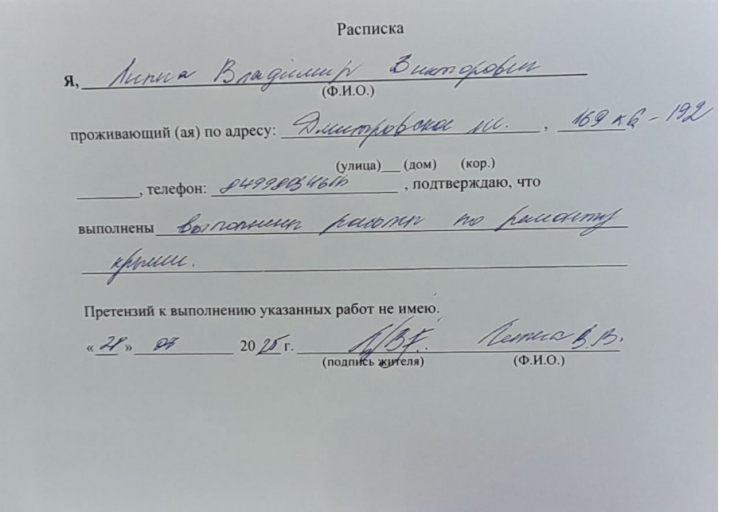 Расписка
Я, Липка Владимир Викторович
(Ф.И.О.)
проживающий (ая) по адресу: Дмитровское ш. , 169 к6 - 192
(улица)___ (дом) (кор.)
________, телефон: , подтверждаю, что
выполнены выполнены работы по ремонту
крыши.
Претензий к выполнению указанных работ не имею.
« 28 » 07 2025 г. В.В.
(подпись жителя) (Ф.И.О.)